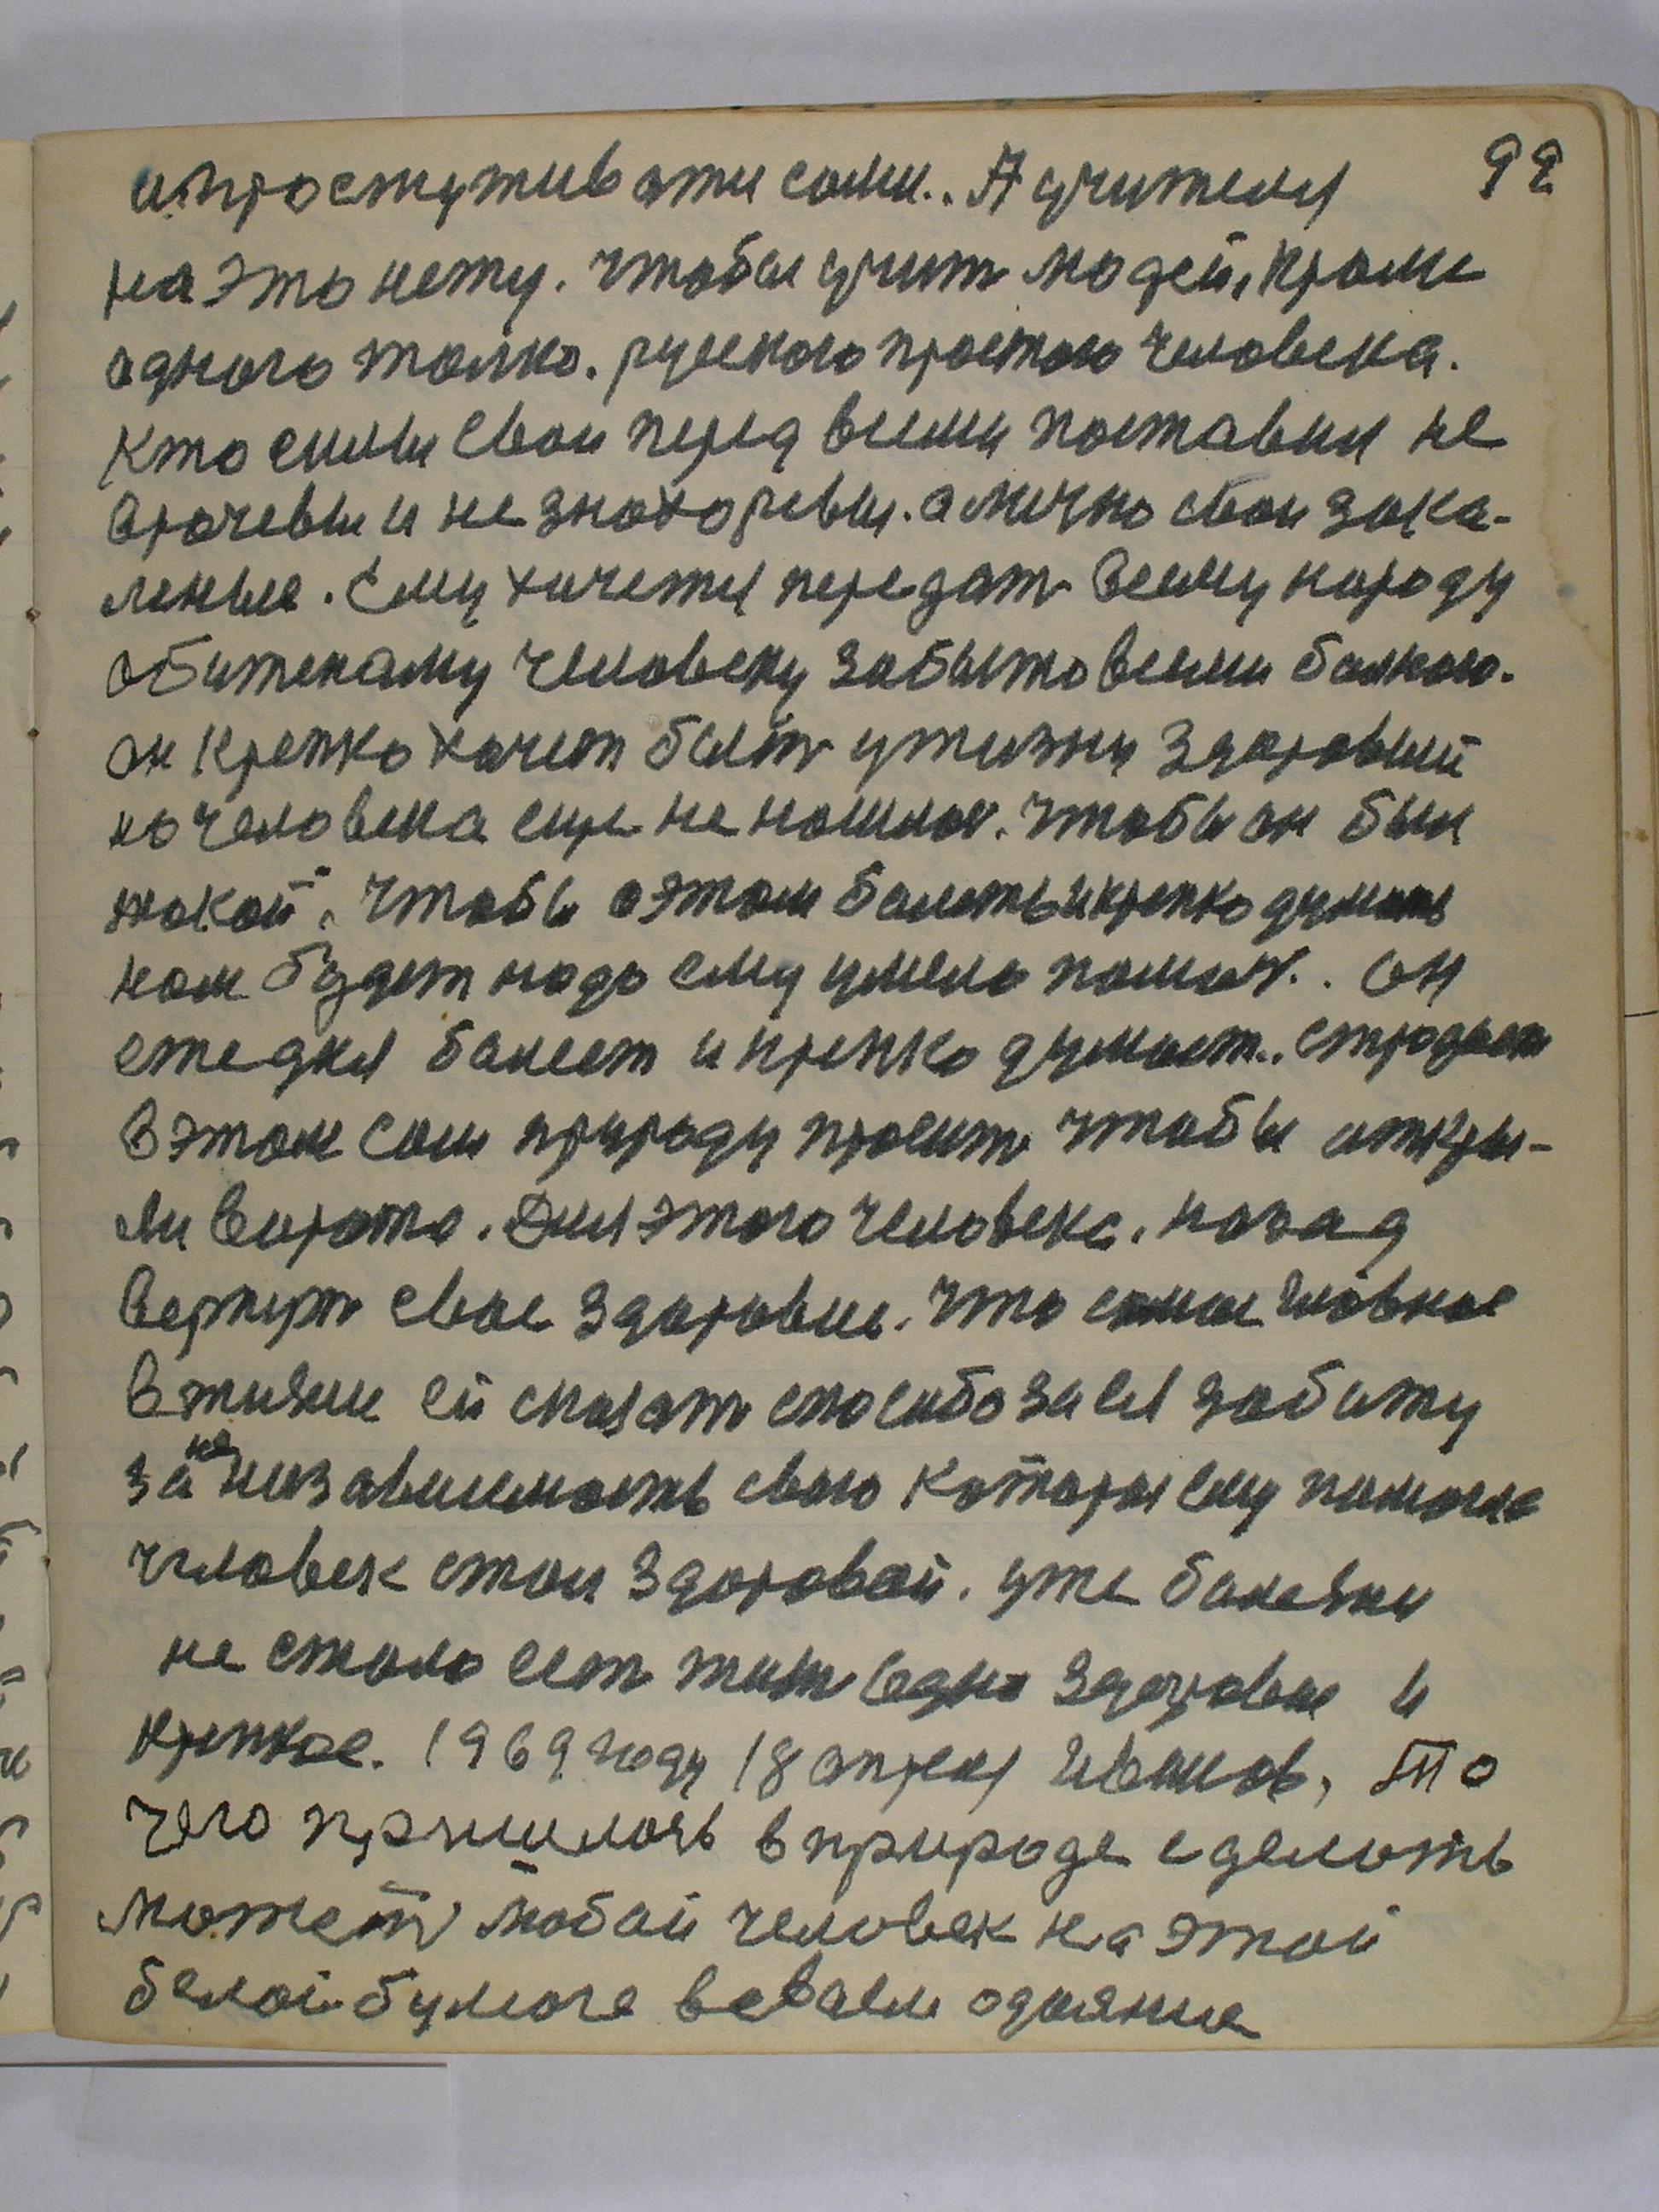 и простутив эти сами.. А учителя 92
на это нету. чтобы учит людей, кроме
одного толко. руского простого человека.
Кто силы свои перед всеми поставил не
врачевы и не знахоревы. а лично свои зака-
леные. Ему хочетця передат всему народу
обитекаму человеку забыто всеми болного.
он крепко хочет быть ужизни здаровый
но человека еще не нашлос. чтобы он был
такой, чтобы о этом болеть и крепко думать
ном будет надо ему умело помоч.. Он
стедия болеет и крепко думает.. страдает
в этом сам природу просит чтобы откры-
ли ворота. Для этого человека. назад
вернут свое здоровие. что самое главное
в жизни ей сказат спосибо за ея заботу
за не низависимость свою которая ему помогла
человек стал здоровой. уже болезни
не стало ест жит одно здоровье и
крепкое. 1969 году 18 апреля Иванов, То
чего пришлось в природе сделоть
может любой человек на этой
белой бумоге всваем одеянии